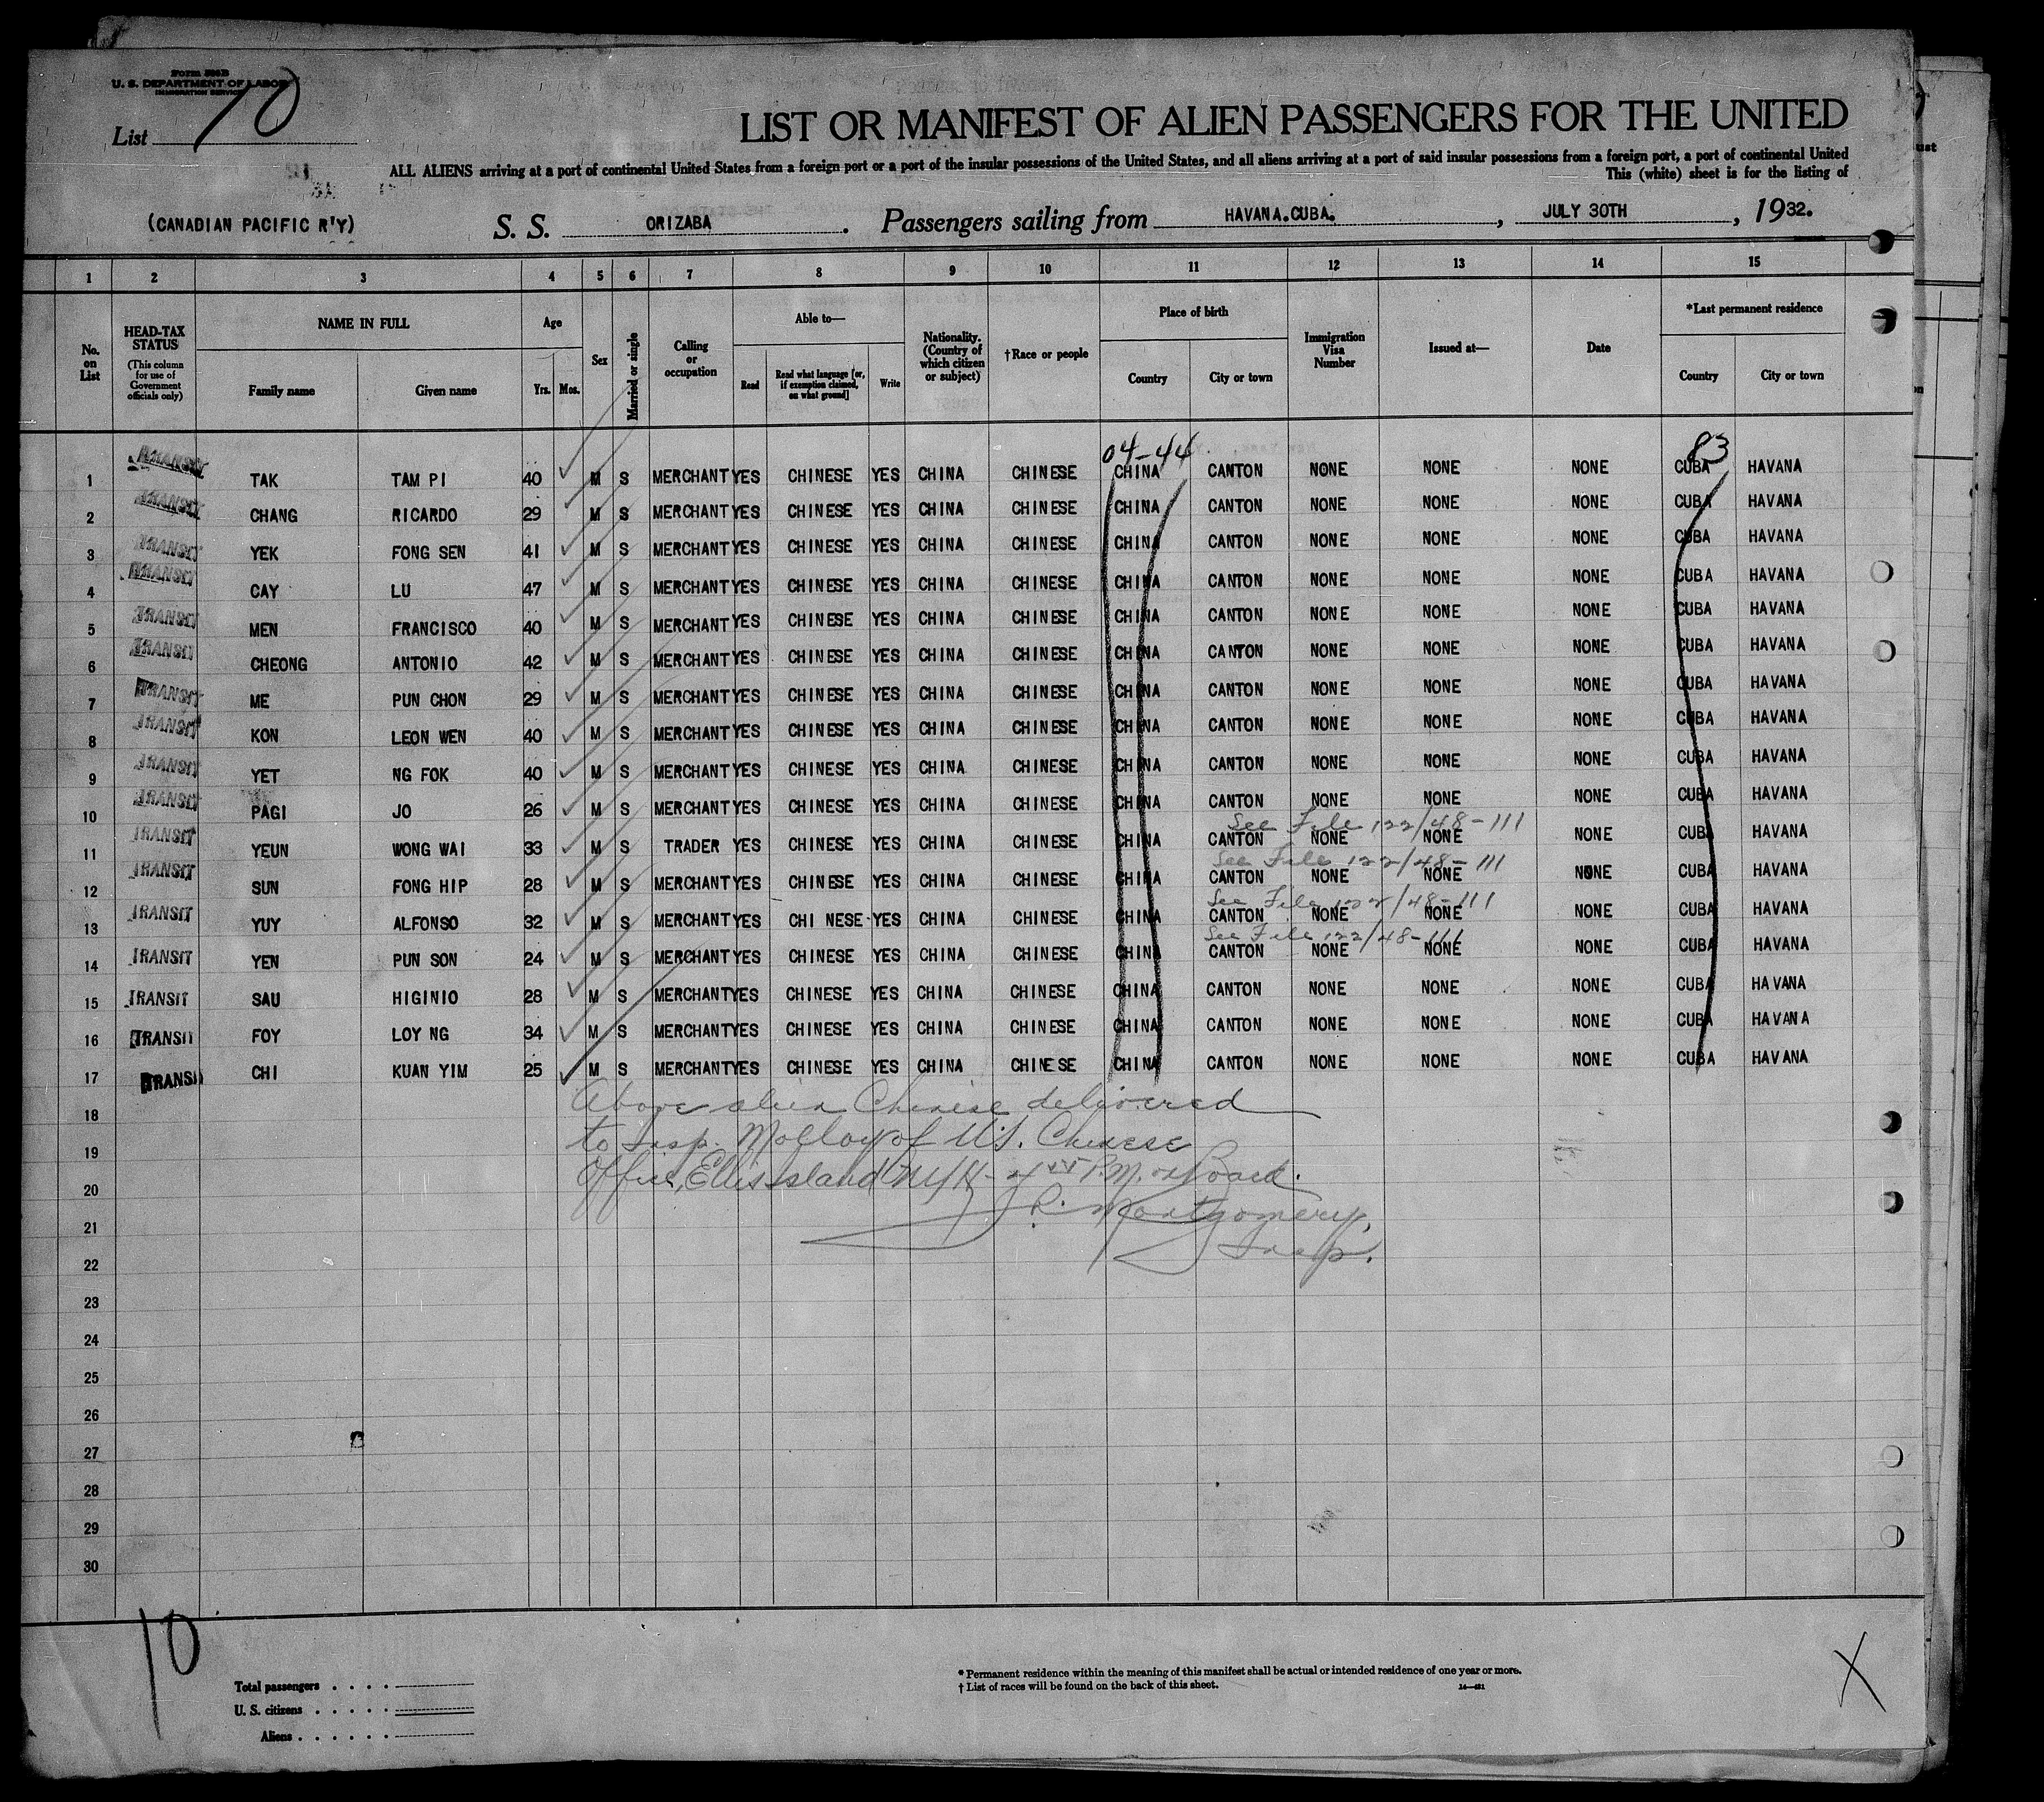 Form 500B
U. S. DEPARTMENT OF LABOR
IMMIGRATION SERVICE
List 10
LIST OR MANIFEST OF ALIEN PASSENGERS FOR THE UNITED
ALL ALIENS arriving at a port of continental United States from a foreign port or a port of the insular possessions of the United States, and all aliens arriving at a port of said insular possessions from a foreign port, a port of continental United
This (white) sheet is for the listing of
(CANADIAN PACIFIC R'Y) S. S. ORIZABA. Passengers sailing from HAVANA.CUBA., JULY 30TH, 1932.
1 2 3 4 5 6 7 8 9 10 11 12 13 14 15
No. on List
HEAD-TAX STATUS
(This column for use of Government officials only)
NAME IN FULL
Family name Given name
Age
Yrs. Mos.
Sex
Married or single
Calling or occupation
Able to—
Read
Read what language [or, if exemption claimed, on what ground]
Write
Nationality. (Country of which citizen or subject)
†Race or people
Place of birth
Country City or town
Immigration Visa Number
Issued at—
Date
*Last permanent residence
Country City or town
04-44 83
1 TRANSIT TAK TAM PI 40 M S MERCHANT YES CHINESE YES CHINA CHINESE CHINA CANTON NONE NONE NONE CUBA HAVANA
2 TRANSIT CHANG RICARDO 29 M S MERCHANT YES CHINESE YES CHINA CHINESE CHINA CANTON NONE NONE NONE CUBA HAVANA
3 TRANSIT YEK FONG SEN 41 M S MERCHANT YES CHINESE YES CHINA CHINESE CHINA CANTON NONE NONE NONE CUBA HAVANA
4 TRANSIT CAY LU 47 M S MERCHANT YES CHINESE YES CHINA CHINESE CHINA CANTON NONE NONE NONE CUBA HAVANA
5 TRANSIT MEN FRANCISCO 40 M S MERCHANT YES CHINESE YES CHINA CHINESE CHINA CANTON NONE NONE NONE CUBA HAVANA
6 TRANSIT CHEONG ANTONIO 42 M S MERCHANT YES CHINESE YES CHINA CHINESE CHINA CANTON NONE NONE NONE CUBA HAVANA
7 TRANSIT ME PUN CHON 29 M S MERCHANT YES CHINESE YES CHINA CHINESE CHINA CANTON NONE NONE NONE CUBA HAVANA
8 TRANSIT KON LEON WEN 40 M S MERCHANT YES CHINESE YES CHINA CHINESE CHINA CANTON NONE NONE NONE CUBA HAVANA
9 TRANSIT YET NG FOK 40 M S MERCHANT YES CHINESE YES CHINA CHINESE CHINA CANTON NONE NONE NONE CUBA HAVANA
10 TRANSIT PAGI JO 26 M S MERCHANT YES CHINESE YES CHINA CHINESE CHINA CANTON NONE NONE NONE CUBA HAVANA
See File 122/48-111
11 TRANSIT YEUN WONG WAI 33 M S TRADER YES CHINESE YES CHINA CHINESE CHINA CANTON NONE NONE NONE CUBA HAVANA
See File 122/48-111
12 TRANSIT SUN FONG HIP 28 M S MERCHANT YES CHINESE YES CHINA CHINESE CHINA CANTON NONE NONE NONE CUBA HAVANA
See File 122/48-111
13 TRANSIT YUY ALFONSO 32 M S MERCHANT YES CHI NESE YES CHINA CHINESE CHINA CANTON NONE NONE NONE CUBA HAVANA
See File 122/48-111
14 TRANSIT YEN PUN SON 24 M S MERCHANT YES CHINESE YES CHINA CHINESE CHINA CANTON NONE NONE NONE CUBA HAVANA
15 TRANSIT SAU HIGINIO 28 M S MERCHANT YES CHINESE YES CHINA CHINESE CHINA CANTON NONE NONE NONE CUBA HAVANA
16 TRANSIT FOY LOY NG 34 M S MERCHANT YES CHINESE YES CHINA CHINESE CHINA CANTON NONE NONE NONE CUBA HAVANA
17 TRANSIT CHI KUAN YIM 25 M S MERCHANT YES CHINESE YES CHINA CHINESE CHINA CANTON NONE NONE NONE CUBA HAVANA
18 Above alien Chinese delivered
19 to Insp. Molloy of U.S. Chinese
20 Office, Ellis Island NYH- P.M. on Board.
21 R. Montgomery,
22 Insp.
23
24
25
26
27
28
29
30
10
Total passengers
U. S. citizens
Aliens
* Permanent residence within the meaning of this manifest shall be actual or intended residence of one year or more.
† List of races will be found on the back of this sheet.
X